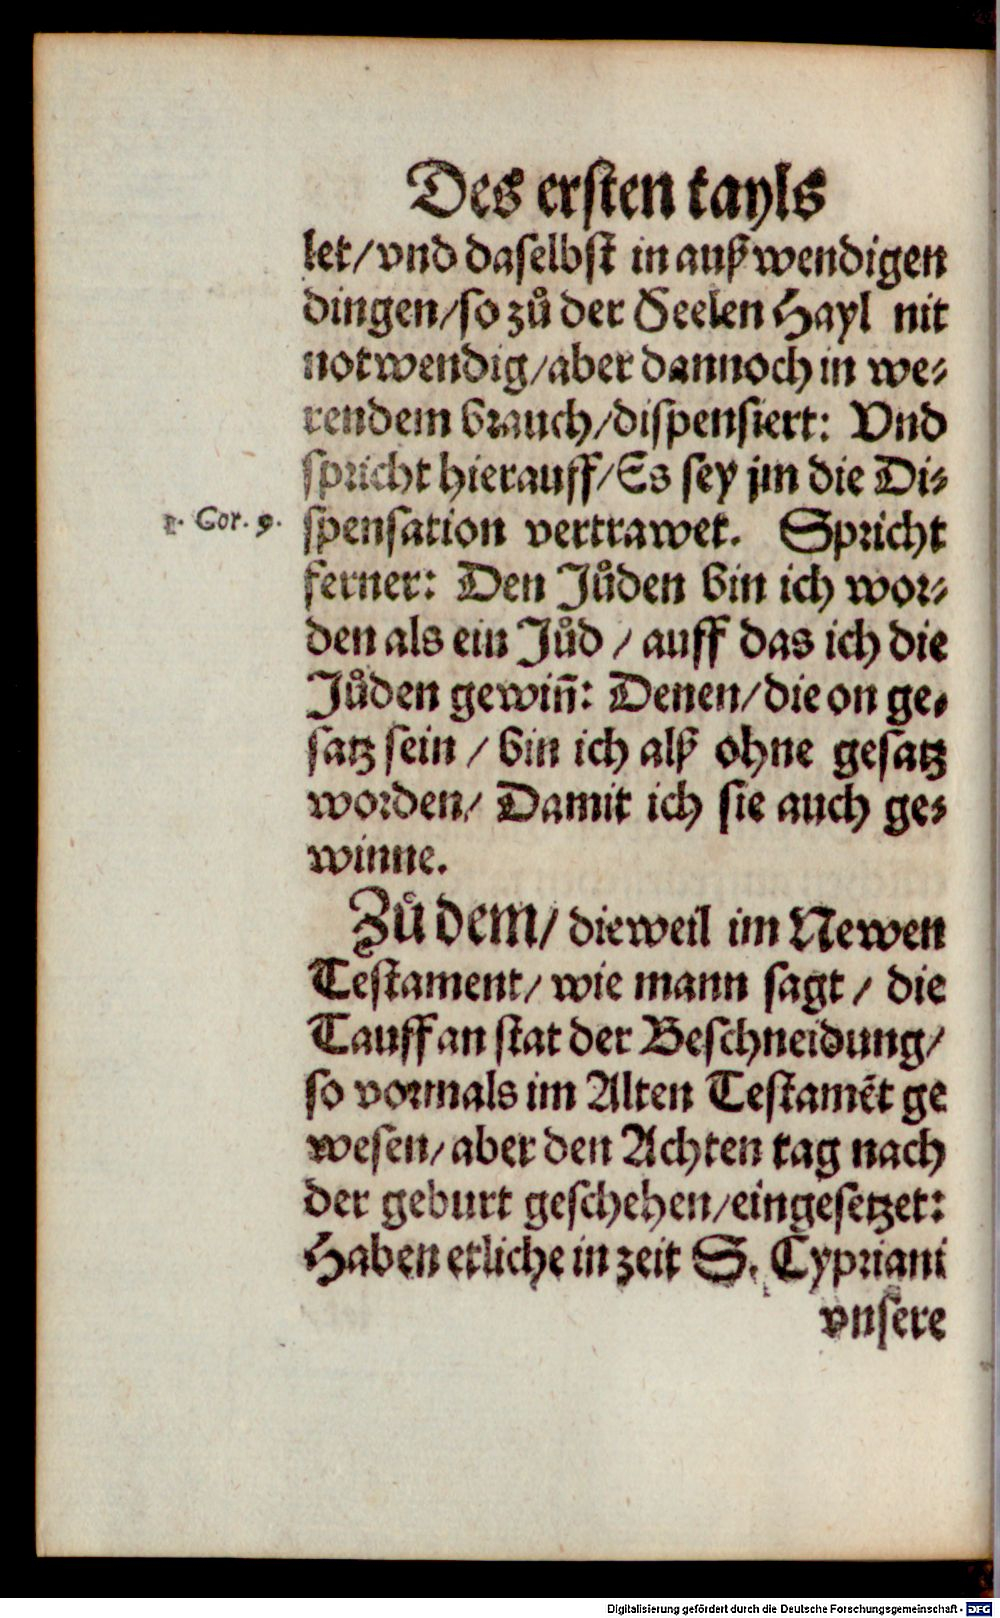 Des ersten tayls
let/vnd daselbst in außwendigen
dingen/so zů der Seelen Hayl nit
notwendig/aber dannoch in we-
rendem brauch/dispensiert: Vnd
spricht hierauff/Es sey jm die Di-
1. Cor. 9.
spensation vertrawet. Spricht
ferner: Den Jůden bin ich wor-
den als ein Jůd / auff das ich die
Jůden gewiñ: Denen/die on ge-
satz sein / bin ich alß ohne gesatz
worden/ Damit ich sie auch ge-
winne.
Zů dem/ dieweil im Newen
Testament/ wie mann sagt / die
Tauff an stat der Beschneidung/
so vormals im Alten Testamēt ge
wesen/aber den Achten tag nach
der geburt geschehen/eingesetzet:
Haben etliche in zeit S. Cypriani
vnsere
Digitalisierung gefördert durch die Deutsche Forschungsgemeinschaft - DFG